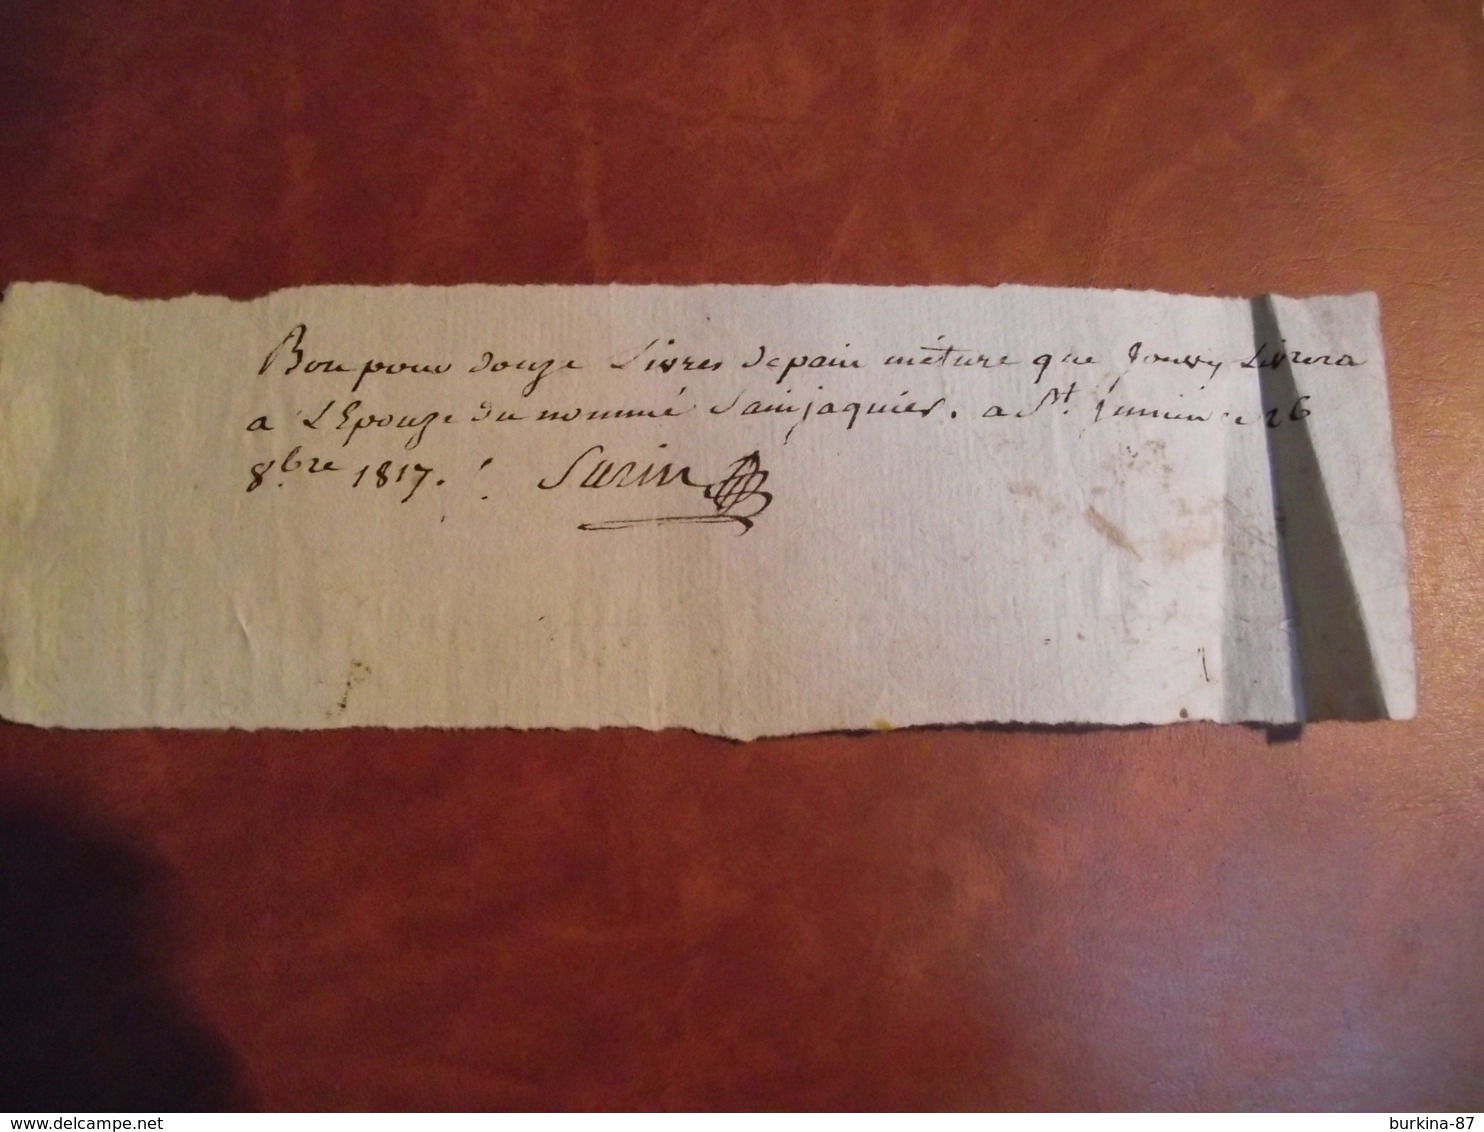 Bon pour douze Livres de pain méture que Jouvy Livrera
a L'Epouze du nommé Sainjaquier. a St. Junien ce 26
8.bre 1817.
Surin
www.delcampe.net
burkina-87